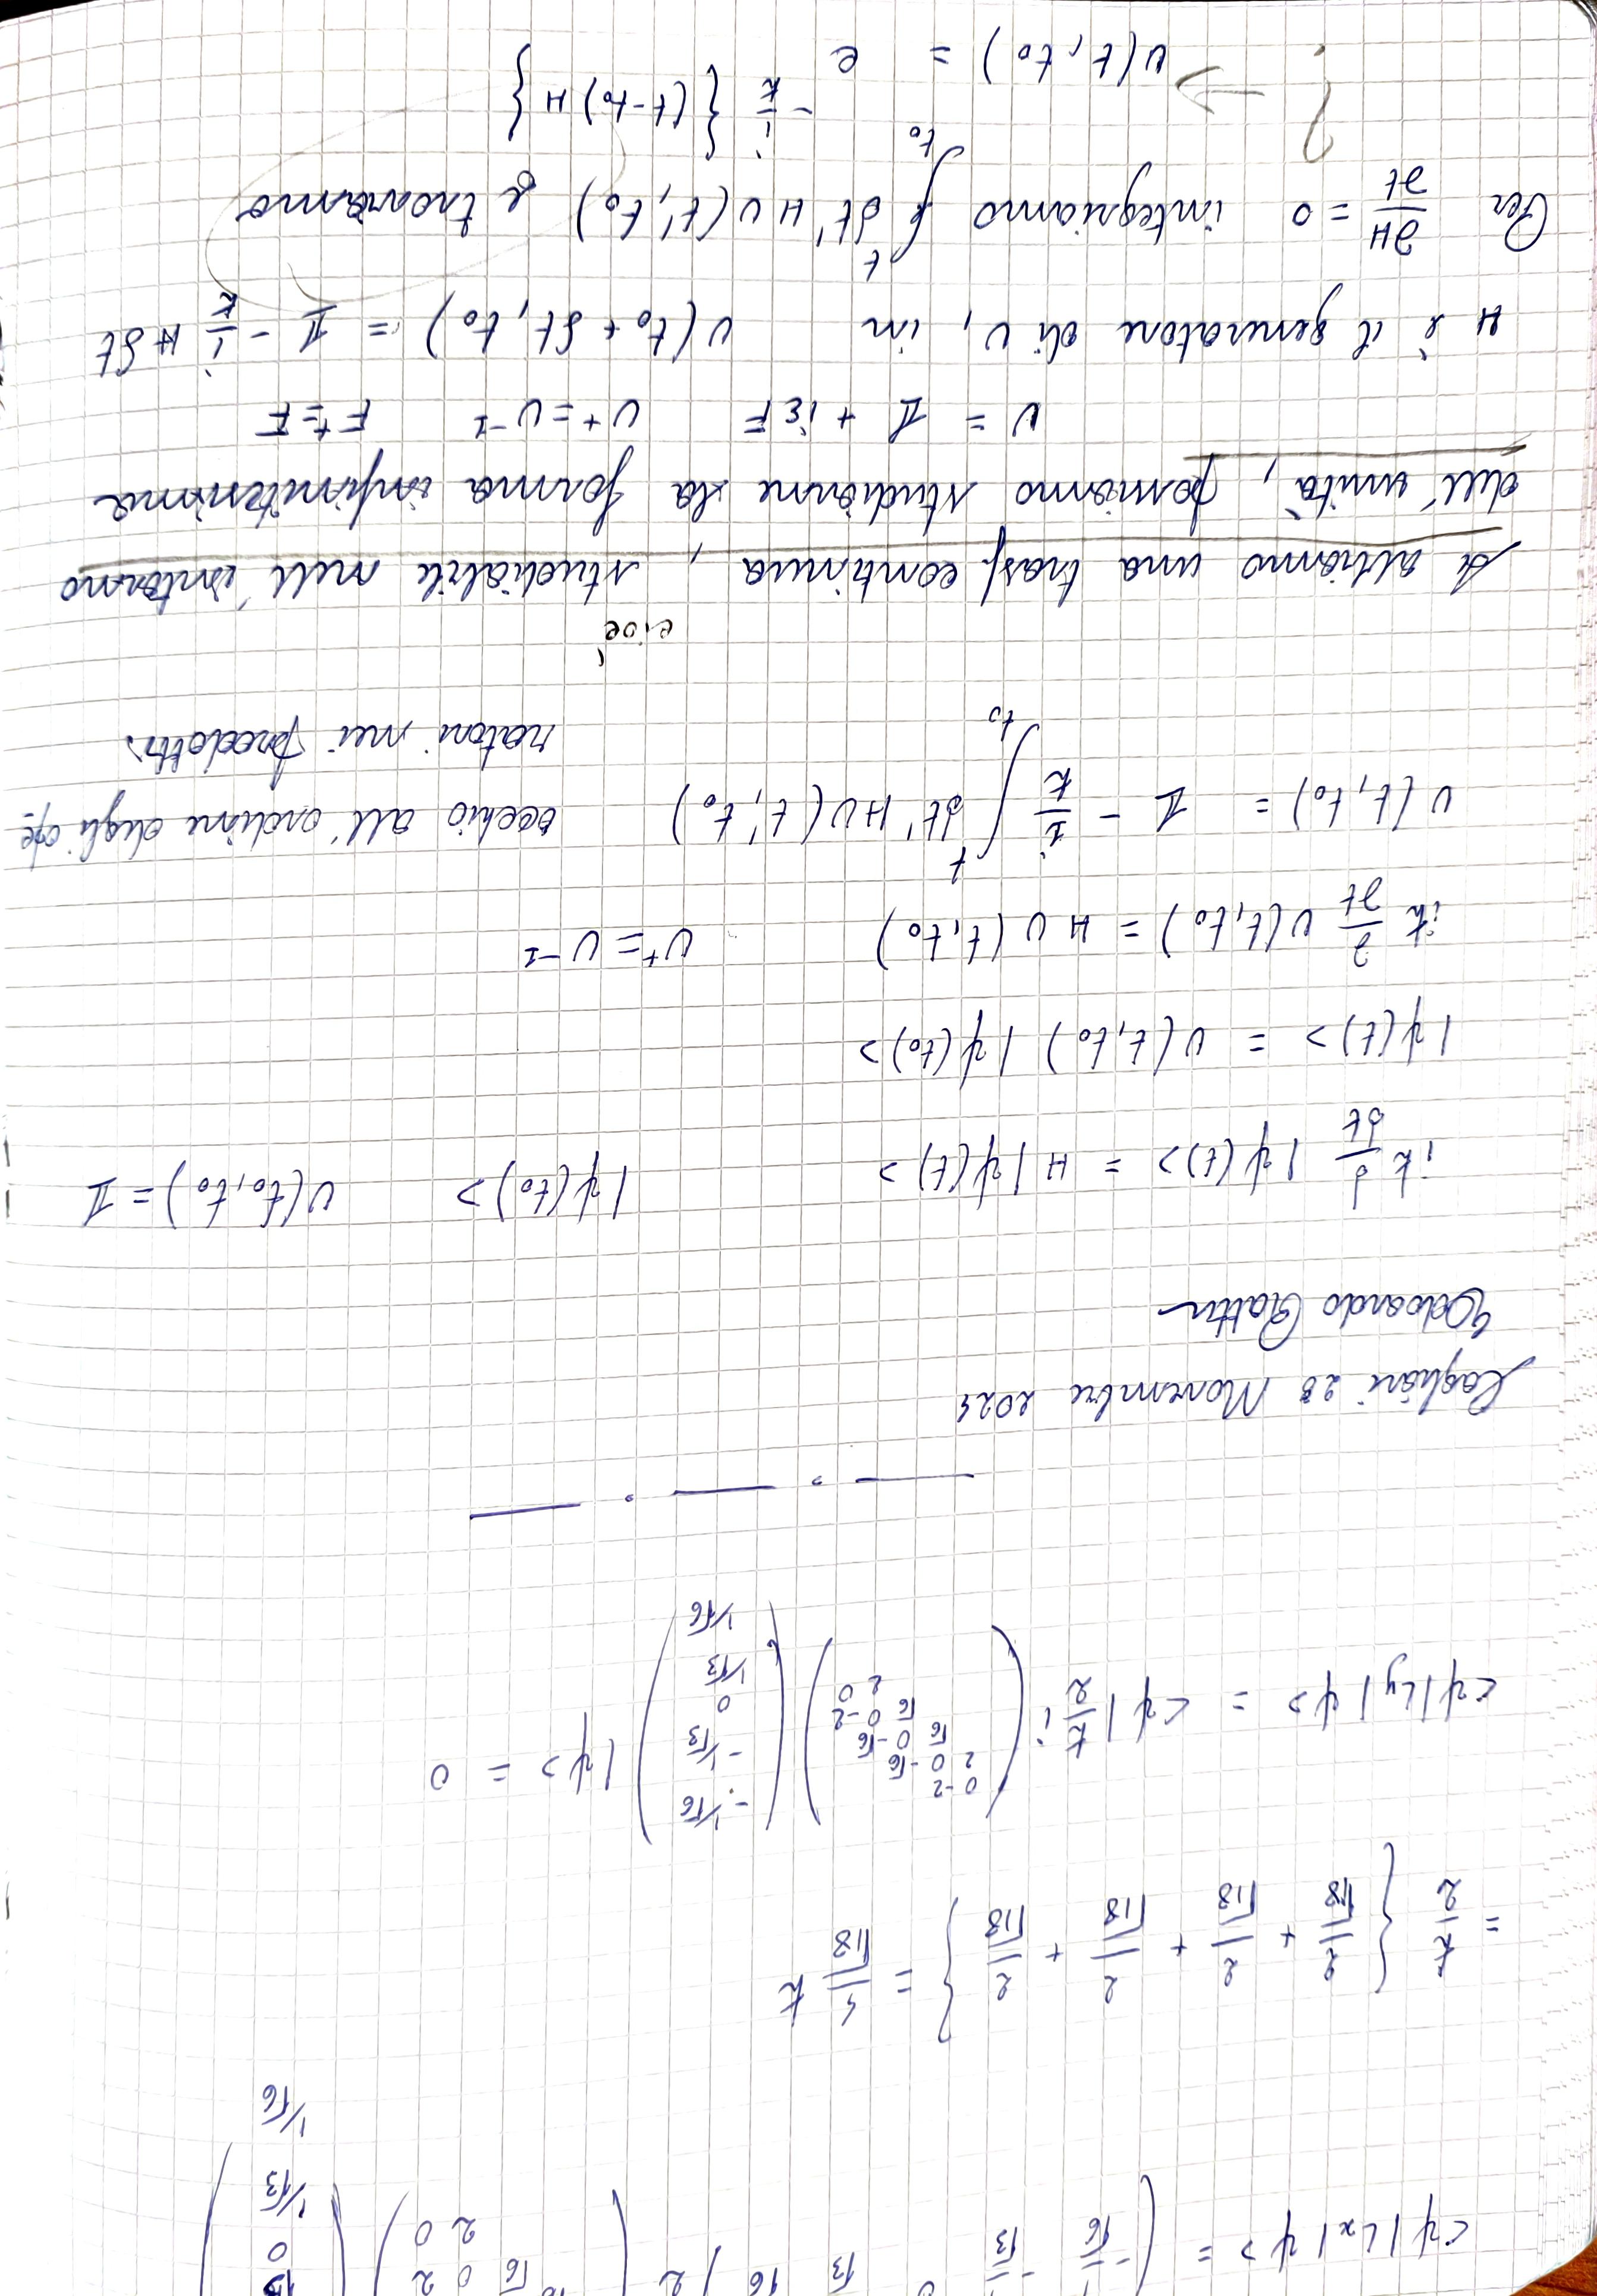 <ψ|Lx|ψ> = ( -1/√6 -1/√3 0 √3 √6 ) 2 ( √6 0 2 2 0 ) ( 0 1/√3 1/√6 )
= ħ/2 { 2/√18 + 2/√18 + 2/√18 + 2/√18 } = 4/√18 ħ
<ψ|Ly|ψ> = <ψ| ħ/2 i ( 0 -2 2 0 -√6 √6 0 -√6 √6 0 -2 2 0 ) ( -1/√6 -1/√3 0 1/√3 1/√6 ) |ψ> = 0
Cagliari 28 Novembre 2024
Edoardo
iħ d/dt |ψ(t)> = H|ψ(t)> |ψ(t₀)> U(t₀,t₀) = 1
|ψ(t)> = U(t,t₀) |ψ(t₀)>
iħ ∂/∂t U(t,t₀) = H U(t,t₀) U⁺ = U⁻¹
U(t,t₀) = 1 - i/ħ ∫_{t₀}^{t} dt' H U(t',t₀) occhio all'ordine degli ope-
ratori nei prodotti.
cioè
Se abbiamo una trasf. continua, studiabile nell'intorno
dell'unità, possiamo studiarne la forma infinitesima
U = 1 + iεF U⁺ = U⁻¹ F⁺ = F
H è il generatore di U, in U(t₀ + δt, t₀) = 1 - i/ħ H δt
Per ∂H/∂t = 0 integriamo ∫_{t₀}^{t} dt' H U(t',t₀) e troviamo
? → U(t,t₀) = e^{-i/ħ {(t-t₀)H}}